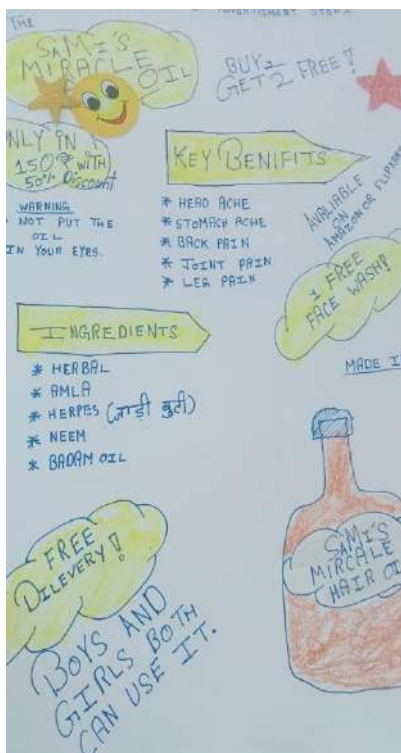 THE
SAMI'S
MIRACLE
OIL
BUY 1
GET 2 FREE!
ONLY IN
150₹ WITH
50% Discount
WARNING
NOT PUT THE
OIL
IN YOUR EYES.
KEY BENIFITS
* HEAD ACHE
* STOMACH ACHE
* BACK PAIN
* JOINT PAIN
* LEG PAIN
AVALIABLE
ON
AMAZON OR FLIPKART
1 FREE
FACE WASH!
MADE I
INGREDIENTS
* HERBAL
* AMLA
* HERPES (जाड़ी बुटी)
* NEEM
* BADAM OIL
SAMI'S
MIRCALE
HAIR OI
FREE
DILEVERY!
BOYS AND
GIRLS BOTH
CAN USE IT.